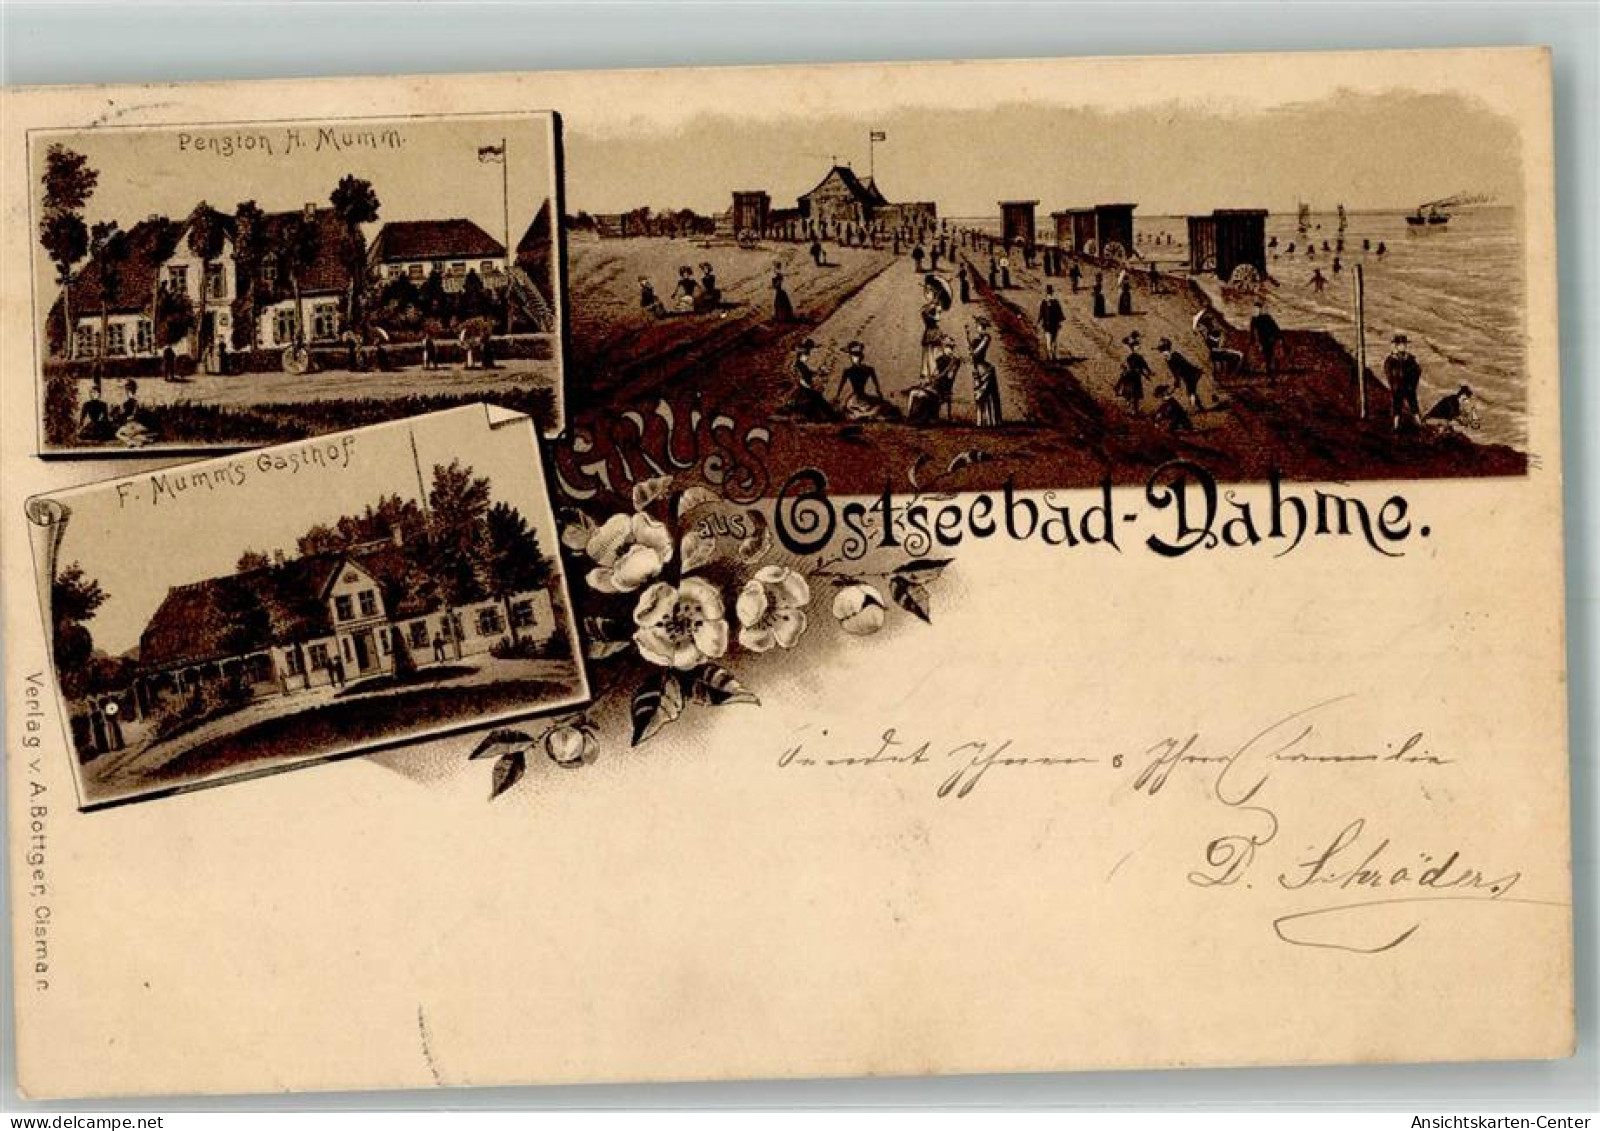 Pension H. Mumm.
F. Mumm's Gasthof.
GRUSS
aus
Ostseebad-Dahme.
Sendet Ihnen & Ihrer Familie
D. Schröder
Verlag v. A. Böttger, Cismar.
Ansichtskarten-Center